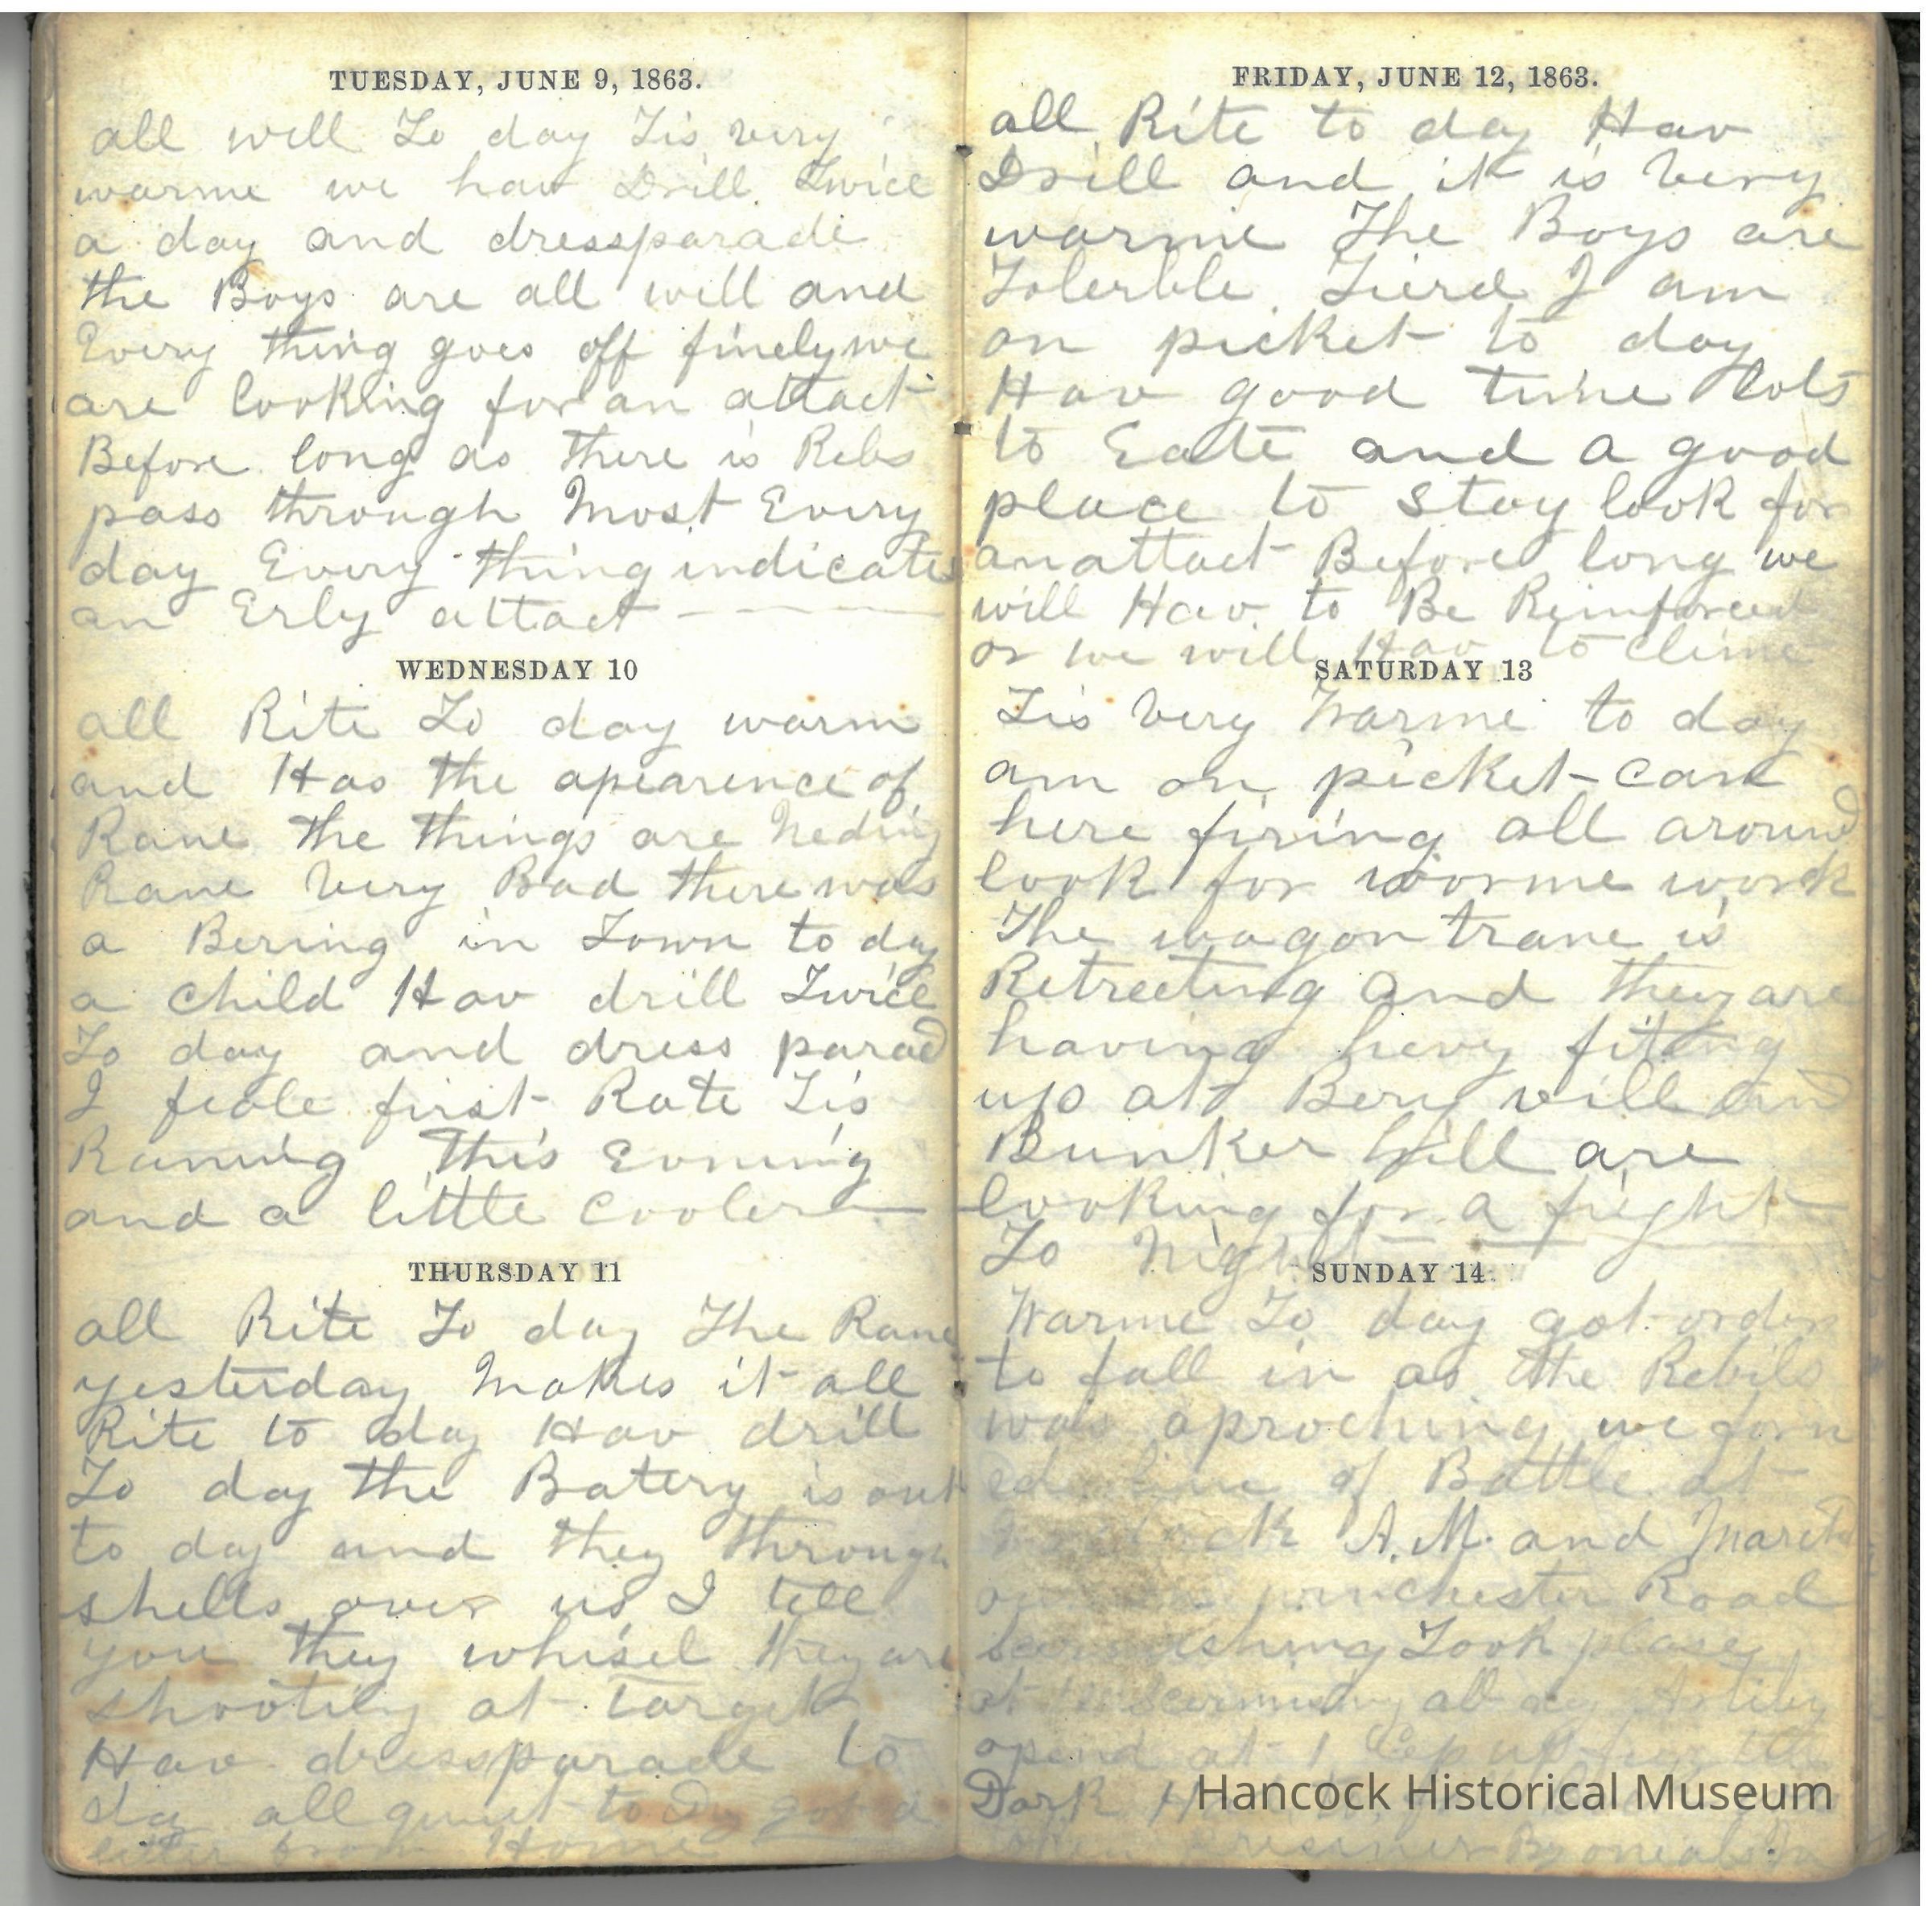 TUESDAY, JUNE 9, 1863.
all well To day Tis very
warme we hav Drill Twice
a day and dressparade
the Boys are all well and
Every thing goes off finely we
are looking for an attact
Before long as there is Rebs
pass through Most Every
day Every thing indicates
an Erly attact
WEDNESDAY 10
all Rite To day warm
and Has the apearence of
Rane the things are Neding
Rane very Bad there was
a Bering in Town to day
a child Hav drill Twice
To day and dress parad
I feale first Rate Tis
Raning this Evning
and a little cooler
THURSDAY 11
all Rite To day The Rane
yesterday Makes it all
Rite to day Hav drill
To day the Batery is out
to day and they through
shells over us I tell
you they whisel they are
shooting at target
Hav dressparade to
day all quiet to Day got a
letter from Home
FRIDAY, JUNE 12, 1863.
all Rite to day Hav
Drill and it is very
warme The Boys are
Tolerble Tierd I am
on picket to day
Hav good time lots
to Eate and a good
place to stay look for
an attact Before long we
will Hav to Be Reinforced
or we will Hav to clime
SATURDAY 13
Tis very Warme to day
am on picket can
here firing all around
look for worme work
The wagon trane is
Retreeting and they are
having hevy fiting
up at Bery vill and
Bunker hill are
looking for a fight
To Night
SUNDAY 14
Warme To day got orders
to fall in as the Rebils
was aproching we form
ed line of Battle at
A.M. and March
winchester Road
Took place
at all day
opend at 1
Dark
Hancock Historical Museum
prisoner By